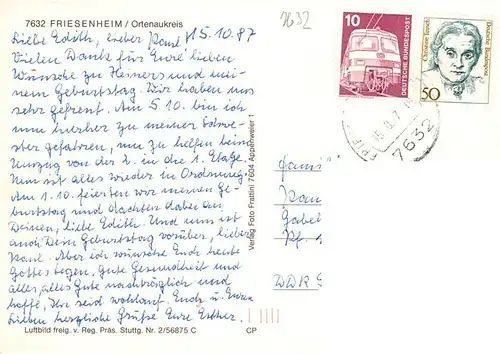 7632 FRIESENHEIM / Ortenaukreis
7632
15.10.87
Liebe Edith, lieber Paul!
Vielen Dank für Eure lieben
Wünsche zu Heiners und mei-
nem Geburtstag. Wir haben uns
sehr gefreut. Am 5.10. bin ich
nun hierher zu meiner Schwe-
ster gefahren, um zu helfen beim
Umzug von der 2. in die 1. Etage.
Nun ist alles wieder in Ordnung.
Am 1.10. feierten wir meinen Ge-
burtstag und dachten dabei an
Deinen, liebe Edith. Und nun ist
auch Dein Geburtstag vorüber, lieber
Paul. Aber ich wünsche Euch heute
Gottes Segen, gute Gesundheit und
alles, alles Gute nachträglich und
hoffe, Ihr seid wohlauf. Euch u. Euren
Lieben herzliche Grüße Eure Esther.
Luftbild freig. v. Reg. Präs. Stuttg. Nr. 2/56875 C
CP
Verlag Foto Frattini 7604 Appenweier 1
10
DEUTSCHE BUNDESPOST
50
Christine Teusch
Deutsche Bundespost
7632
Fami
Pau
Gabel
DDR